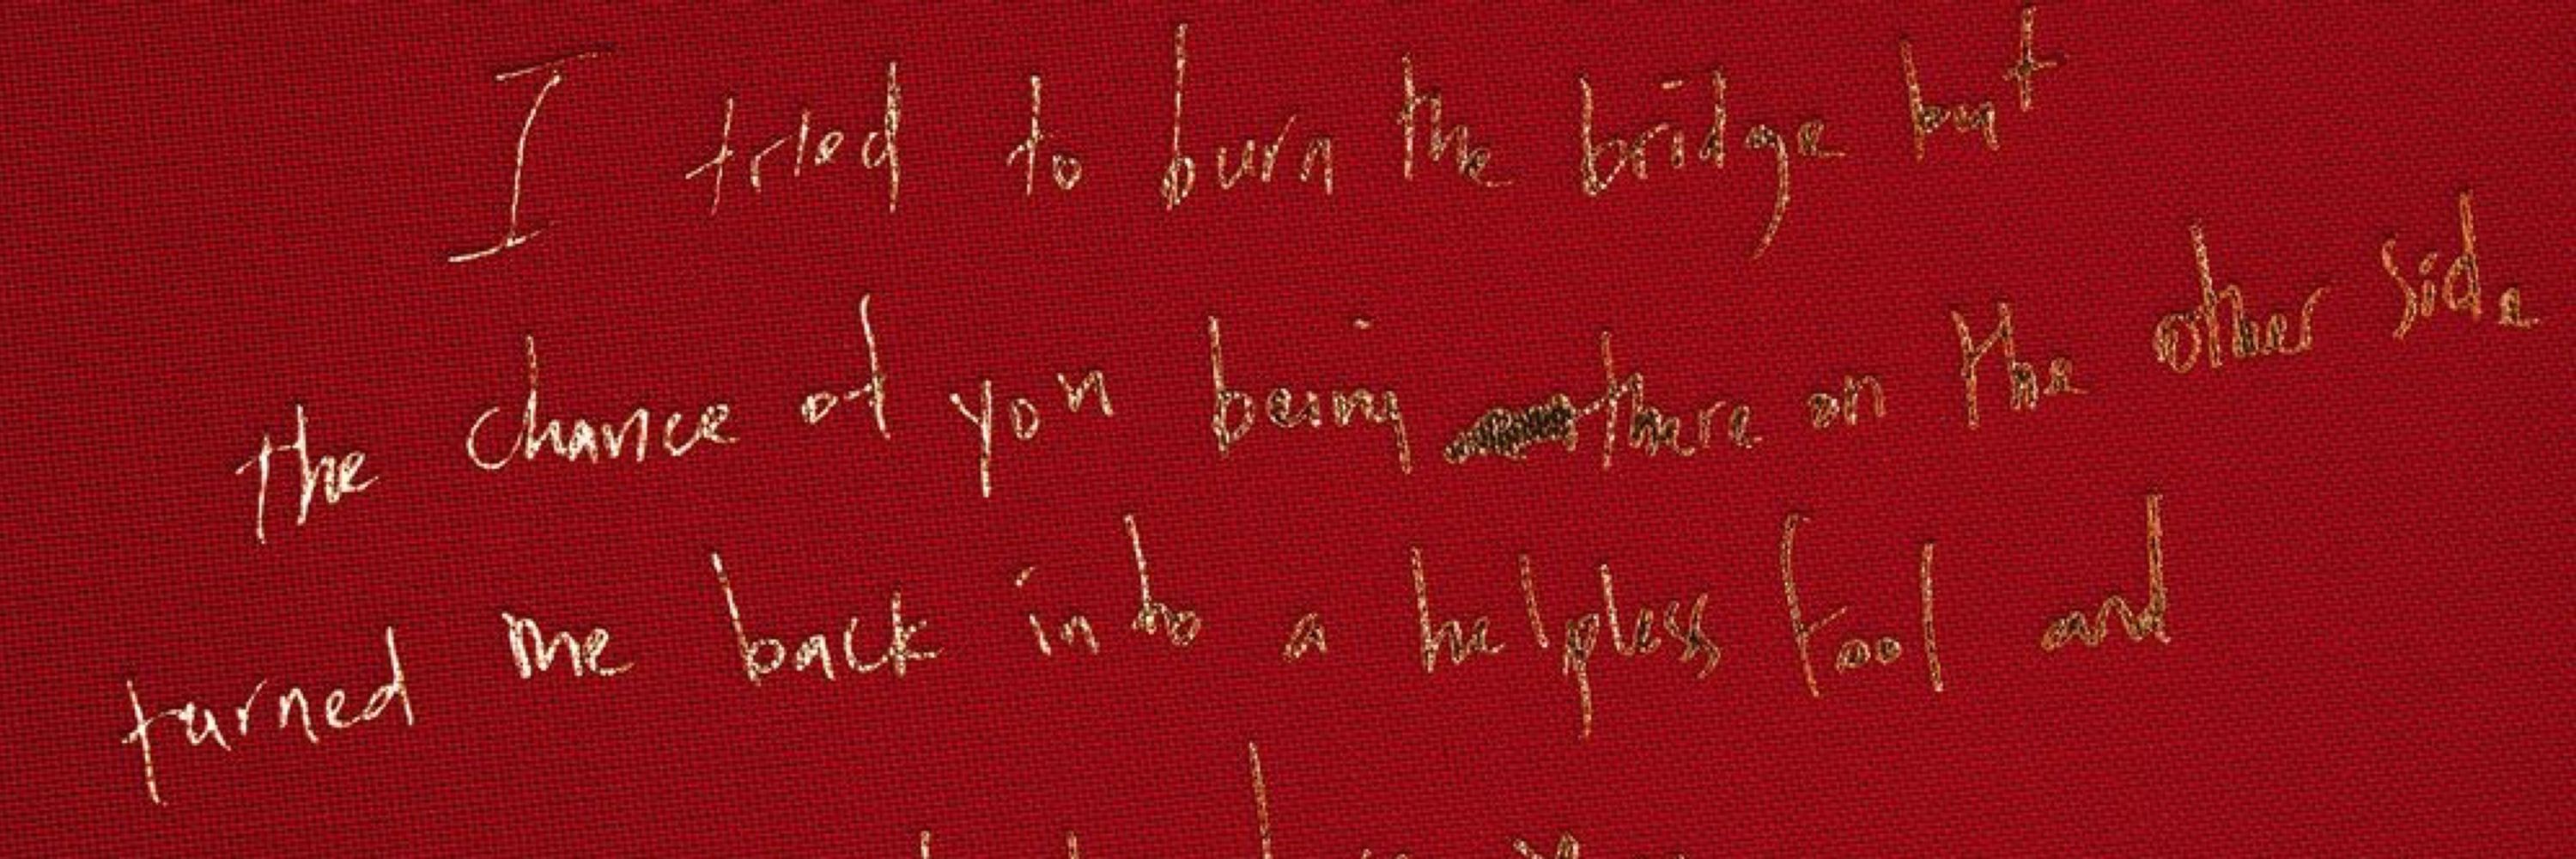 I tried to burn the bridge but
the chance of you being there on the other side
turned me back into a helpless fool and